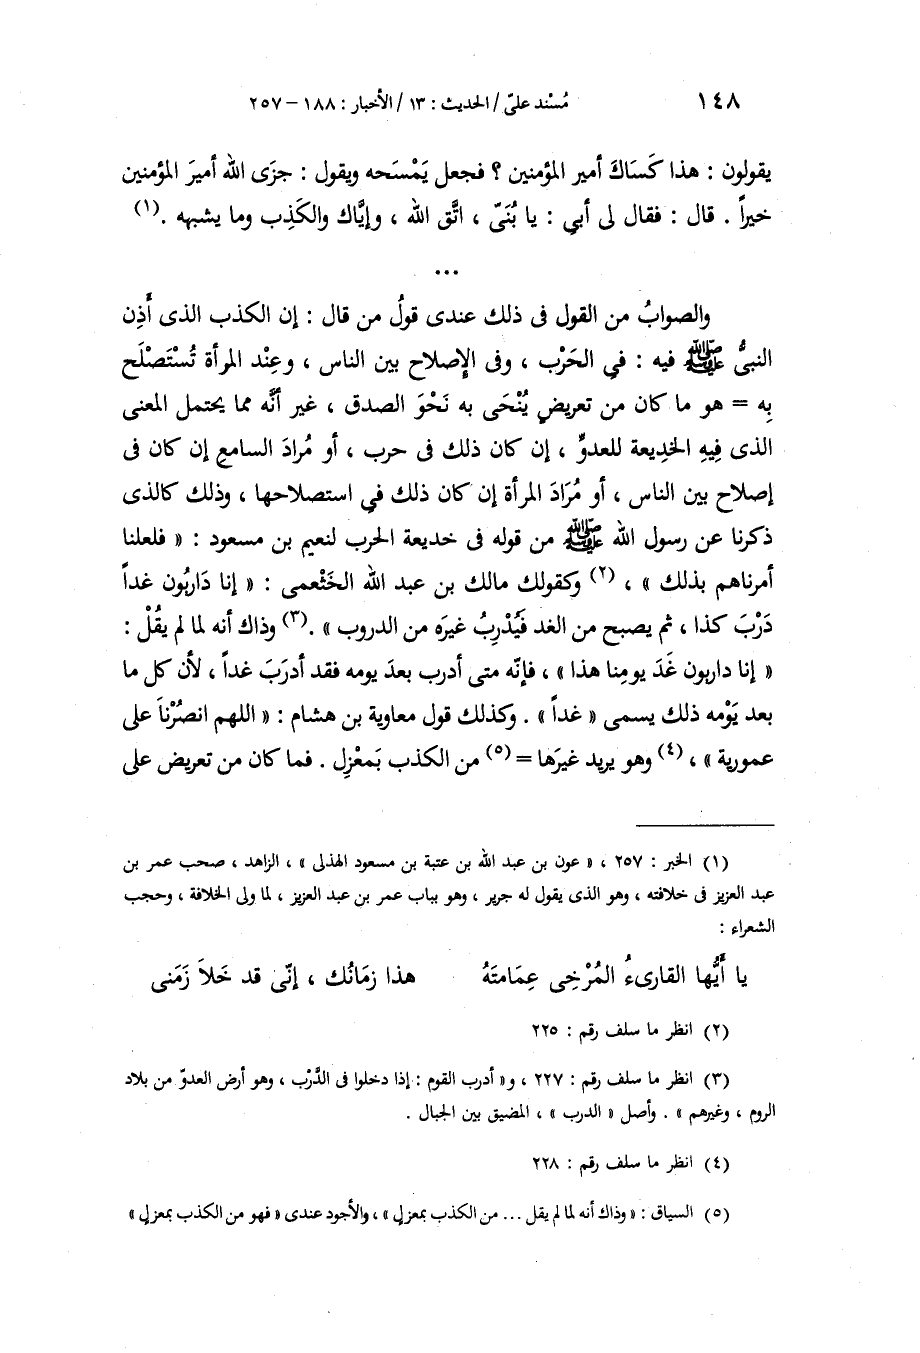 ١٤٨ مُسْند علىّ / الحديث : ١٣ / الأخبار : ١٨٨ – ٢٥٧
يقولون : هذا كَسَاكَ أمير المؤمنين ؟ فجعل يَمْسَحه ويقول : جزَى الله أميرَ المؤمنين
خيراً . قال : فقال لى أبي : يا بُنَىّ ، اتَّق الله ، وإيَّاك والكَذِب وما يشبهه .(١)
...
والصوابُ من القول فى ذلك عندى قولُ من قال : إن الكذب الذى أَذِن
النبىُّ ﷺ فيه : فيِ الحَرْب ، وفى الإصلاح بين الناس ، وعِنْد المرأة تُسْتَصْلَح
بِه = هو ما كان من تعريضٍ يُنْحَى به نَحْوَ الصدق ، غير أنَّه مما يحتمل المعنى
الذى فِيهِ الخَدِيعة للعدوِّ ، إن كان ذلك فى حرب ، أو مُرادَ السامع إن كان فى
إصلاح بين الناس ، أو مُرَادَ المرأة إن كان ذلك في استصلاحها ، وذلك كالذى
ذكرنا عن رسول الله ﷺ من قوله فى خديعة الحرب لنعيم بن مسعود : « فلعلنا
أمرناهم بذلك » ، (٢) وكقولك مالك بن عبد الله الخَثْعمى : « إنا دَاربُون غداً
دَرْبَ كذا ، ثم يصبح من الغد فَيُدْرِبُ غيرَه من الدروب » .(٣) وذاك أنه لما لم يقُلْ :
« إنا داربون غَدَ يومِنا هذا » ، فإنّه متى أدرب بعدَ يومه فقد أدرَبَ غداً ، لأن كل ما
بعد يَوْمه ذلك يسمى « غداً » . وكذلك قول معاوية بن هشام : « اللهم انصُرْناَ على
عمورية » ، (٤) وهو يريد غيرَها = (٥) من الكذب بَمعْزِل . فما كان من تعريض على
(١) الخبر : ٢٥٧ ، « عون بن عبد الله بن عتبة بن مسعود الهذلى » ، الزاهد ، صحب عمر بن
عبد العزيز فى خلافته ، وهو الذى يقول له جرير ، وهو بباب عمر بن عبد العزيز ، لما ولى الخلافة ، وحجب
الشعراء :
يا أَيُّها القارىءُ المُرْخِى عِمَامتَهُ هذا زمَانُك ، إنّى قد خَلاَ زَمَنى
(٢) انظر ما سلف رقم : ٢٢٥
(٣) انظر ما سلف رقم : ٢٢٧ ، و« أدرب القوم : إذا دخلوا فى الدَّرْب ، وهو أرض العدوّ من بلاد
الروم ، وغيرهم » . وأصل « الدرب » ، المضيق بين الجبال .
(٤) انظر ما سلف رقم : ٢٢٨
(٥) السياق : « وذاك أنه لما لم يقل ... من الكذب بمعزل » ، والأجود عندى « فهو من الكذب بمعزل »